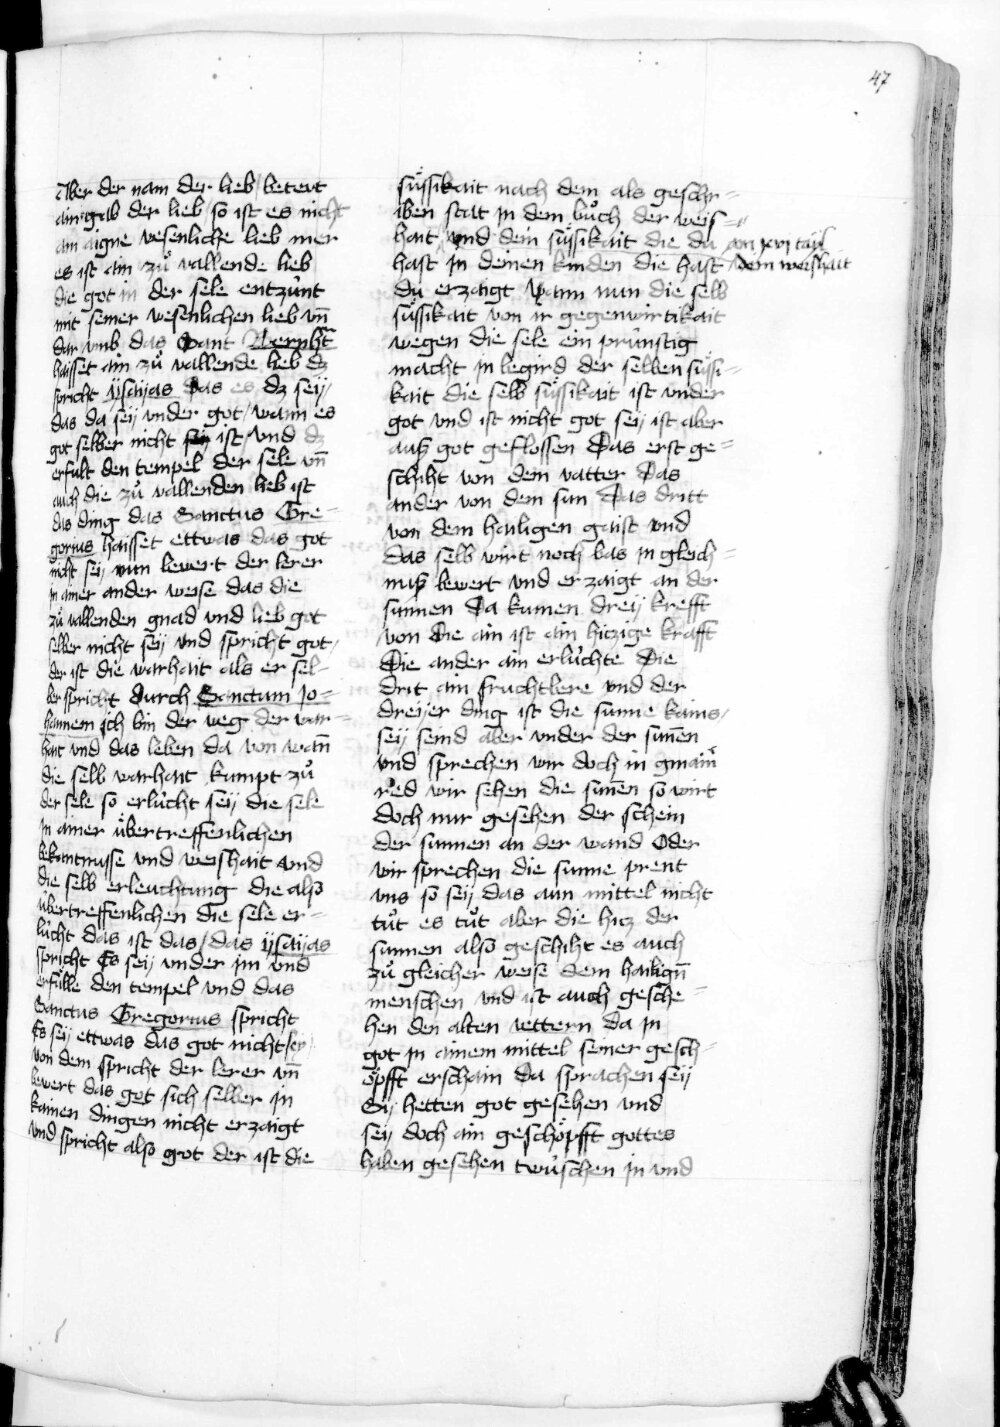 47
Aber der nam der lieb / betewt
ain gab der lieb / so ist es nicht
ain aigne wesenliche lieb mer
es ist ain zuͦ vallende lieb
die got in der sele entzúnt
mit seiner wesenlichen lieb vn̄
dar vmb das Sant Bernht
haisset ain zuͦ vallende lieb dz
spricht ÿsaÿas das es dz seÿ /
das da seÿ vnder got / wann es
got selber nicht seÿ ist / vnd dz
erfúlt den tempel der sele vn̄
auch die zuͦ vallenden lieb ist
das ding das Sanctus Gre=
gorius haisset ettwas das got
nicht seÿ nun bewert der lerer
in ainer ander weise das die
zuͦ vallenden gnad vnd lieb got
selber nicht seÿ vnd spricht got /
der ist die warhait als er sel=
ber spricht durch Sanctum Jo=
hannem ich bin der weg der war=
hait vnd das leben da von wan̄
die selb warhait kumpt zuͦ
der sele so erlúcht seÿ die sele
in ainer úbertreffenlichen
bekantnusse vnd weishait vnd
die selb erleuchtung die also
úbertreffenlichen die sele er=
lúcht das ist das / das ÿsaÿas
spricht Es seÿ vnder im vnd
erfúlle den tempel vnd das
Sanctus Gregorius spricht
Es seÿ ettwas das got nicht seÿ /
von dem spricht der lerer vn̄
bewert das got sich selber in
kainen dingen nicht erzaigt
vnd spricht also got der ist die
sússikait nach dem als geschr=
iben stat in dem buͦch der weis=
hait vnd dein sússikait die du am xvj tail
hast in deinen kinden die hast / dem weishait
du erzaigt wann nun die selb
sússikait von ir gegenwirtikait
wegen die sele ein prúnstig
macht in begird der selben súsi=
kait die selb súsikait ist vnder
got vnd ist nicht got seÿ ist aber
auß got geflossen Das erst ge=
schiht von dem vatter Das
ander von dem sun Das dritt
von dem hailigen gaist vnd
das selb wirt noch bas in gleich=
nuß bewert vnd erzaigt an der
sunnen Da kumen dreÿ krefft
von Die ain ist ain hiczige krafft
Die ander ain erlúchte Die
drit ain fruchtbere vnd der
dreÿer ding ist die sunne kains /
seÿ seind aber vnder der sunen
vnd sprechen wir doch in gmain
red wir sehen die sunen so wirt
doch nur gesehen der schein
der sunnen an der wand Oder
wir sprechen die sunne prent
vns so seÿ das aun mittel nicht
tuͦt es tuͦt aber die hicz der
sunnen also geschiht es auch
zuͦ gleicher weise dem hailign̄
menschen vnd ist auch gesche=
hen den alten vettern da in
got in ainem mittel seiner gesch=
öpfft erschain da sprachen seÿ
Sÿ hetten got gesehen vnd
seÿ doch ain geschöpfft gottes
haben gesehen twúschen in vnd